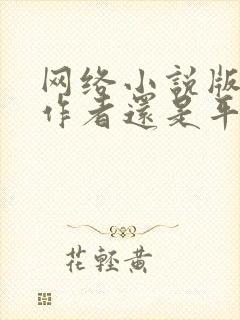 网络小説版
作者還是平
花輕黄